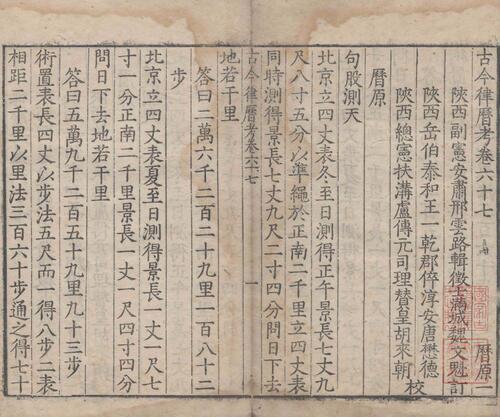 古今律曆考卷六十七 曆原二
陝西副憲安肅邢雲路輯 徵士滿城魏文魁訂
陝西岳伯泰和王一乾 郡倅淳安唐懋德
陝西總憲扶溝盧傳元 司理贊皇胡來朝 校
曆原
句股測天
北京立四丈表冬至日測得正午景長七丈九
尺八寸五分以準繩於正南二千里立四丈表
同時測得景長七丈九尺二寸四分問日下去
古今律曆考卷六十七 一
地若干里
答曰一萬六千二百二十九里一百八十二
步
北京立四丈表夏至日測得景長一丈一尺七
寸一分正南二千里景長一丈一尺四寸四分
問日下去地若干里
答曰五萬九千二百五十九里九十三步
術置表長四丈以步法五尺而一得八步二表
相距二千里以里法三百六十步通之得七十